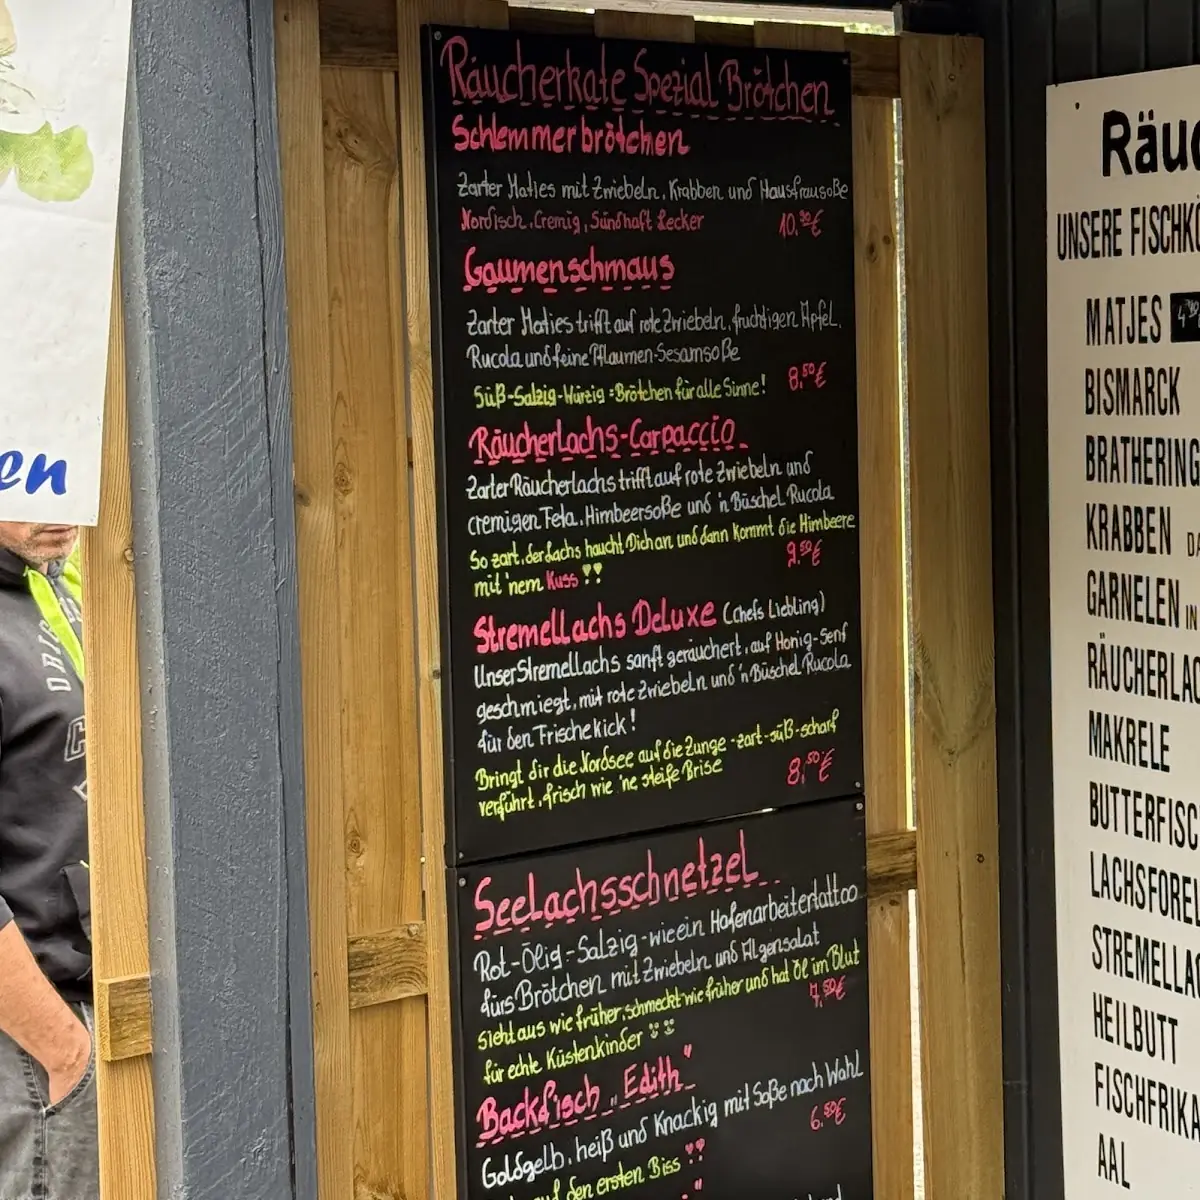 en
DRIF
Räucherkate Spezial Brötchen
Schlemmerbrötchen
Zarter Matjes mit Zwiebeln, Krabben und Hausfrausoße
Nordisch, Cremig, Sündhaft Lecker 10,90€
Gaumenschmaus
Zarter Matjes trifft auf rote Zwiebeln, fruchtigen Apfel,
Rucola und feine Pflaumen-Sesamsoße
Süß-Salzig-Würzig = Brötchen für alle Sinne! 8,50€
Räucherlachs-Carpaccio
Zarter Räucherlachs trifft auf rote Zwiebeln und
cremigen Feta, Himbeersoße und 'n Büschel Rucola
So zart, der Lachs haucht Dich an und dann kommt die Himbeere
mit 'nem Kuss !! 9,50€
Stremellachs Deluxe (Chefs Liebling)
Unser Stremellachs sanft geräuchert, auf Honig-Senf
geschmiegt, mit rote Zwiebeln und 'n Büschel Rucola
für den Frischekick!
Bringt dir die Nordsee auf die Zunge - zart-süß-scharf
verführt, frisch wie 'ne steife Brise 8,50€
Seelachsschnetzel
Rot-Ölig-Salzig-wie ein Hafenarbeitertattoo
fürs Brötchen mit Zwiebeln und Algensalat
Sieht aus wie früher, schmeckt wie früher und hat Öl im Blut
für echte Küstenkinder 7,50€
Backfisch „Edith"
Goldgelb, heiß und Knackig mit Soße nach Wahl
auf den ersten Biss !! 6,50€
Räuc
UNSERE FISCHKÖ
MATJES
BISMARCK
BRATHERING
KRABBEN DA
GARNELEN IN
RÄUCHERLAC
MAKRELE
BUTTERFISC
LACHSFOREL
STREMELLAC
HEILBUTT
FISCHFRIKA
AAL